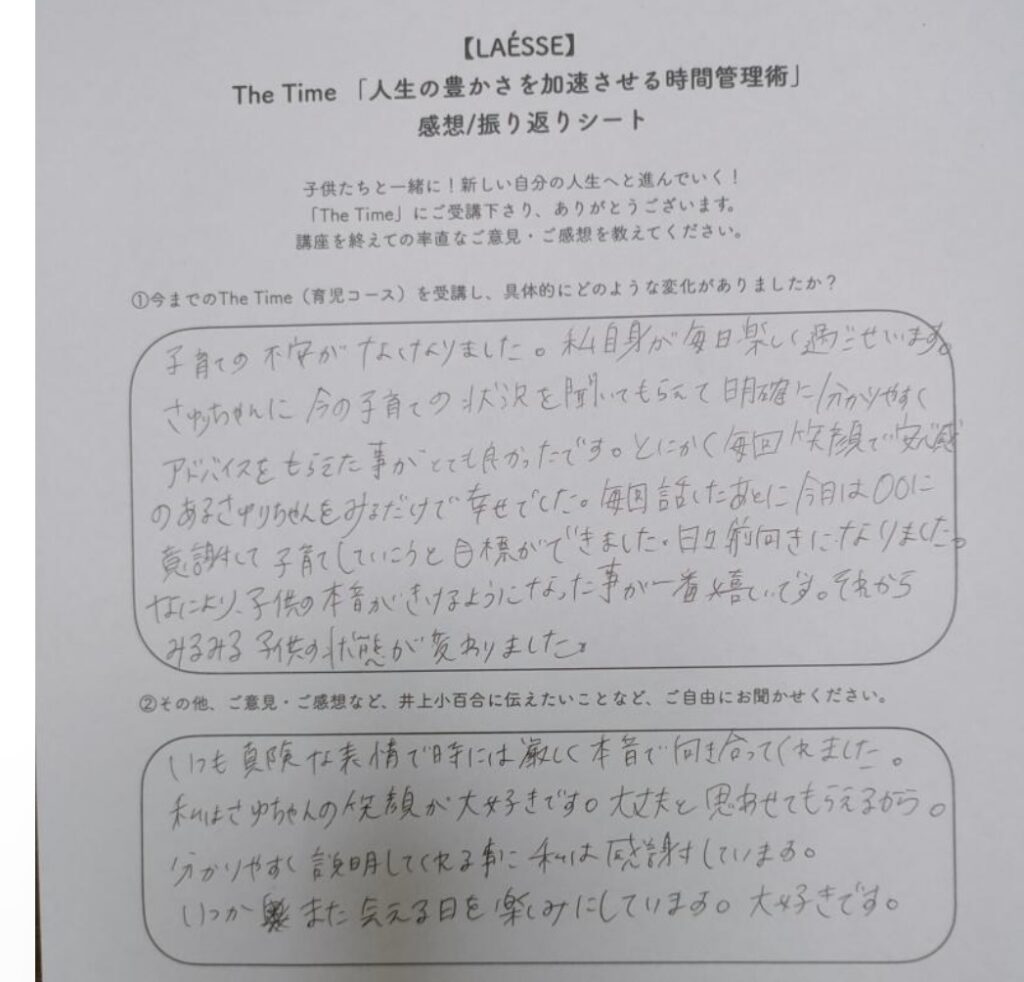 【LAÉSSE】
The Time 「人生の豊かさを加速させる時間管理術」
感想/振り返りシート
子供たちと一緒に！新しい自分の人生へと進んでいく！
「The Time」にご受講下さり、ありがとうございます。
講座を終えての率直なご意見・ご感想を教えてください。
①今までのThe Time（育児コース）を受講し、具体的にどのような変化がありましたか？
子育ての不安がなくなりました。私自身が毎日楽しく過ごせています。
さゆりちゃんに今の子育ての状況を聞いてもらえて明確に分かりやすく
アドバイスをもらえた事がとても良かったです。とにかく毎回笑顔で安心感
のあるさゆりちゃんをみるだけで幸せでした。毎回話したあとに今月は〇〇に
意識して子育てしていこうと目標ができました。日々前向きになりました。
なにより、子供の本音がきけるようになった事が一番嬉しいです。それから
みるみる子供の状態が変わりました。
②その他、ご意見・ご感想など、井上小百合に伝えたいことなど、ご自由にお聞かせください。
いつも真険な表情で時には厳しく本音で向き合ってくれました。
私はさゆちゃんの笑顔が大好きです。大丈夫と思わせてもらえるから。
分かりやすく説明してくれる事に私は感謝しています。
いつか また会える日を楽しみにしています。大好きです。